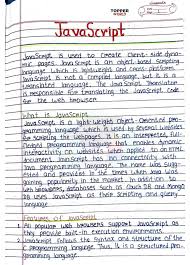 TOPPER WORLD
JavaScript
JavaScript is used to create client-side dyna-
mic pages. JavaScript is an object-based scripting
language which is lightweight and cross-platform.
JavaScript is not a compiled language, but it is a
translated language. The JavaScript Translator
is responsible for translating the JavaScript code
for the web browser.
What is JavaScript
JavaScript is a light-weight object-Oriented pro-
gramming language which is used by several websites
for scripting the webpages. It is an interpreted, full-
fledged programming language that enables dynamic
interactivity on websites when applied to an HTML
document. JavaScript has no connectivity with
Java programming language. The name was sugge-
sted and provided in the times when Java was
gaining popularity in the market. In addition to
web browsers, databases such as Couch DB and Mongo
DB uses JavaScript as their scripting and query
language.
Features of JavaScript
All popular web browsers support JavaScript as
they provide built-in execution environments.
JavaScript follows the syntax and structure of the
C programming language. Thus, it is a structured pro-
gramming language.